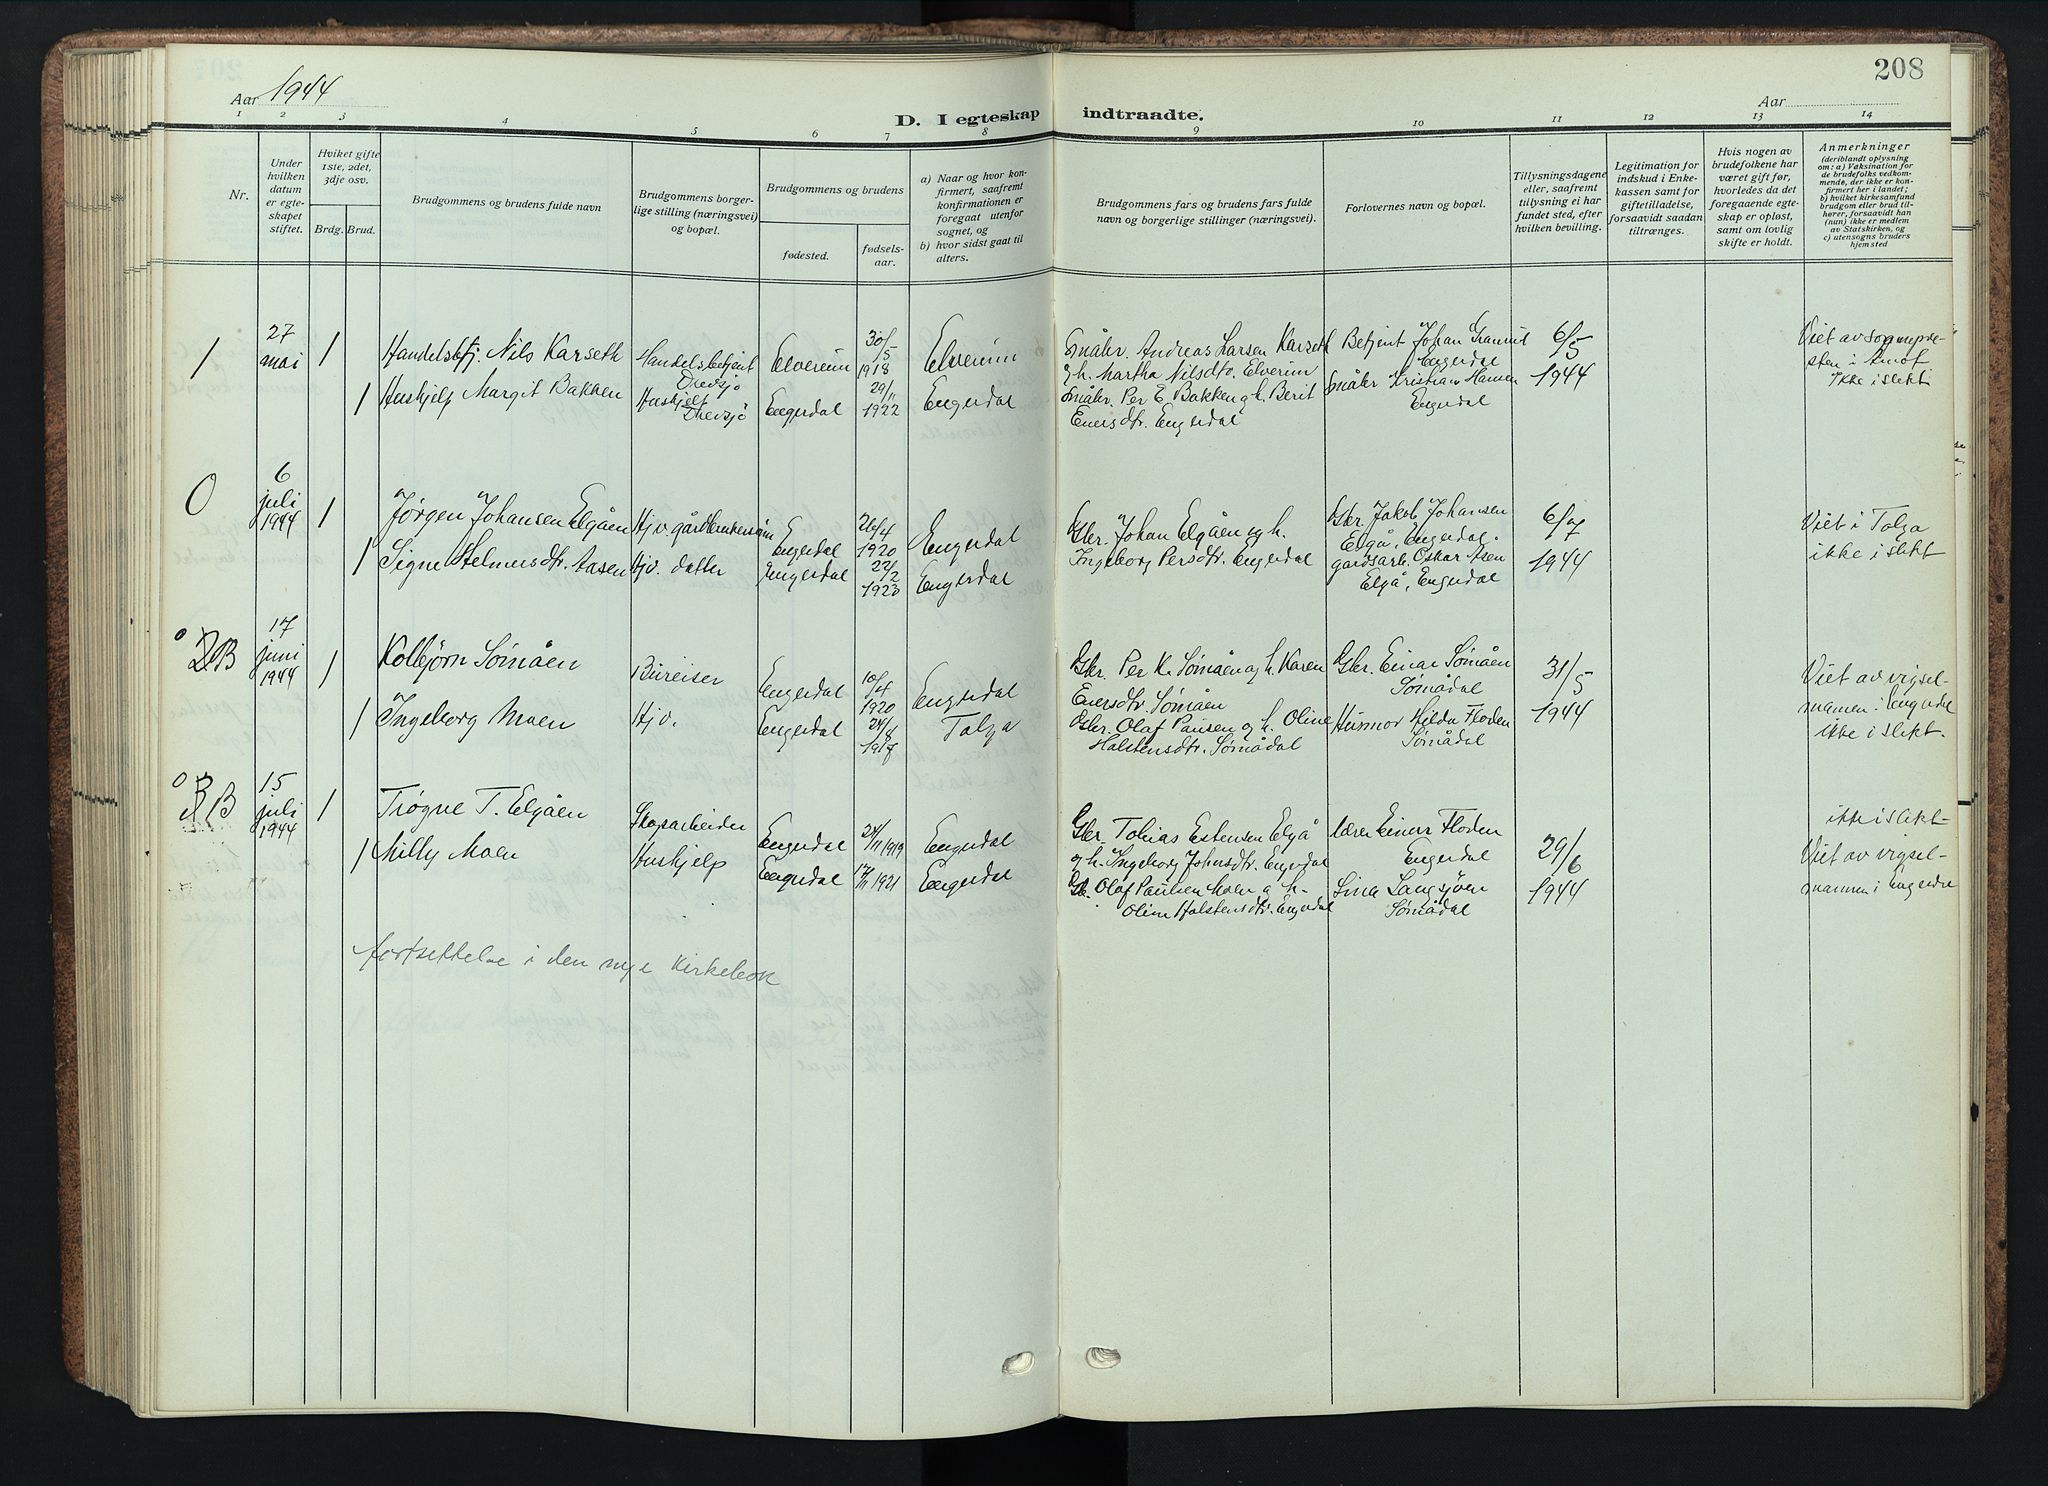 208
Aar 1944
Aar
D. I egteskap indtraadte.
1 2 3 4 5 6 7 8 9 10 11 12 13 14
Nr.
Under
hvilken
datum
er egte-
skapet
stiftet.
Hviket gifte
1ste, 2det,
3dje osv.
Brdg. Brud.
Brudgommens og brudens fulde navn
Brudgommens borger-
lige stilling (næringsvei)
og bopæl.
Brudgommens og brudens
fødested.
fødsels-
aar.
a) Naar og hvor kon-
firmert, saafremt
konfirmationen er
foregaat utenfor
sognet, og
b) hvor sidst gaat til
alters.
Brudgommens fars og brudens fars fulde
navn og borgerlige stillinger (næringsvei).
Forlovernes navn og bopæl.
Tillysningsdagene
eller, saafremt
tillysning ei har
fundet sted, efter
hvilken bevilling.
Legitimation for
indskud i Enke-
kassen samt for
giftetilladelse,
forsaavidt saadan
tiltrænges.
Hvis nogen av
brudefolkene har
været gift før,
hvorledes da det
foregaaende egte-
skap er opløst,
samt om lovlig
skifte er holdt.
Anmerkninger
(deriblandt oplysning
om: a) Vaksination for
de brudefolks vedkom-
mende, der ikke er kon-
firmert her i landet;
b) hvilket kirkesamfund
brudgom eller brud til-
hører, forsaavidt han
(hun) ikke er medlem
av Statskirken, og
c) utensogns bruders
hjemsted
1
27
mai
1
Handelsbtj. Nils Karseth
Handelsbetjent
Drevsjø
Elverum
30/5
1918
Elverum
1
Hushjelp Margit Bakken
Hushjelp
Drevsjø
Engerdal
29/11
1922
Engerdal
Småbr. Andreas Larsen Karseth
og h. Martha Nilsdtr. Elverum
Småbr. Per E. Bakken og h. Berit
Eversdtr. Engerdal
Betjent Johan
Engerdal
Småbr Kristian Hansen
Engerdal
6/5
1944
Viet av sognepre-
sten i Åmot
Ikke i slekt
0
6
juli
1944
1
Jørgen Johansen Elgåen
Hjv. gårdbrukersøn
Engerdal
26/4
1920
Engerdal
1
Signe Helmersdtr. Aasen
Hjv. datter
Engerdal
22/2
1923
Engerdal
Gbr. Johan Elgåen og h.
Ingeborg Persdtr. Engerdal
Gbr. Jakob Johansen
Elgå, Engerdal.
gårdsarb. Oskar Åsen
Elgå, Engerdal
6/7
1944
Viet i Tolga
ikke i slekt
2B
17
juni
1944
1
Kolbjørn Sømåen
Bureiser
Engerdal
10/4
1920
Engerdal
1
Ingeborg Moen
Hjv.
Engerdal
24/8
1917
Tolga
Gbr. Per K. Sømåen og h. Karen
Eversdtr. Sømåen
Gbr. Olaf Paulsen og h. Oline
Halstensdtr. Sømådal
Gbr. Einar Sømåen
Sømådal
Husmor Hilda Floden
Sømådal
31/5
1944
Viet av vigsel-
mannen i Engerdal
ikke i slekt.
3B
15
juli
1944
1
Trygve T. Elgåen
Skogsarbeider
Engerdal
24/11 1919
Engerdal
1
Milly Moen
Hushjelp
Engerdal
17/11 1921
Engerdal
Gbr. Tobias Estensen Elgå
og h. Ingeborg Johnsdtr. Engerdal
Gbr. Olaf Paulsen Moen og h.
Oline Halstensdtr. Engerdal
Lærer Einar Floden
Engerdal
Lina Langsjøen
Sømådal
29/6
1944
ikke i slekt
Viet av vigsel-
mannen i Engerdal
fortsettelse i den nye Kirkebok